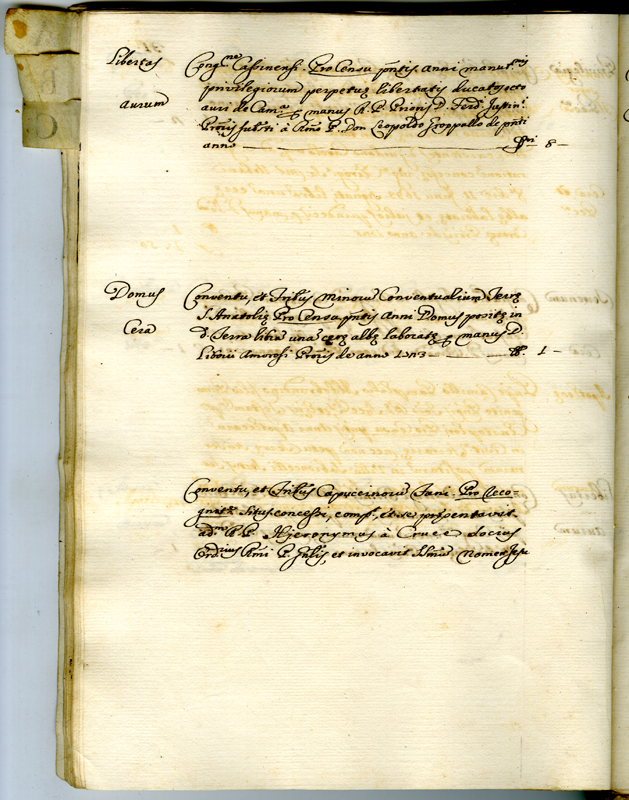 Libertas
aurum
Cong.ne Casinensi. Pro Censu pntis. anni manut.nis
privilegiorum perpetuę libertatis ducatos octo
auri de Cam.a ꝑ manus R. P. Prioris D. Ferd.
Proris à Rmo P. Don Leopoldo de pnti
anno 8
Domus
Cera
Conventu, et Fribus Minorum Conventualium Terrę
S. Anatolię Pro Censu pntis Anni Domus positę in
d. Terra libra una cerę albę laboratę ꝑ manus D.
Liborii Amorosi Proris de anno 1703 1
Conventu, et Fribus Capuccinorum Pro Reco-
gnit.e Situs concessi, comp. et se pręsentavit
ad. R. P. Hjeronymus à Cruce socius
Rmi P. et invocavit Nomen Jesu